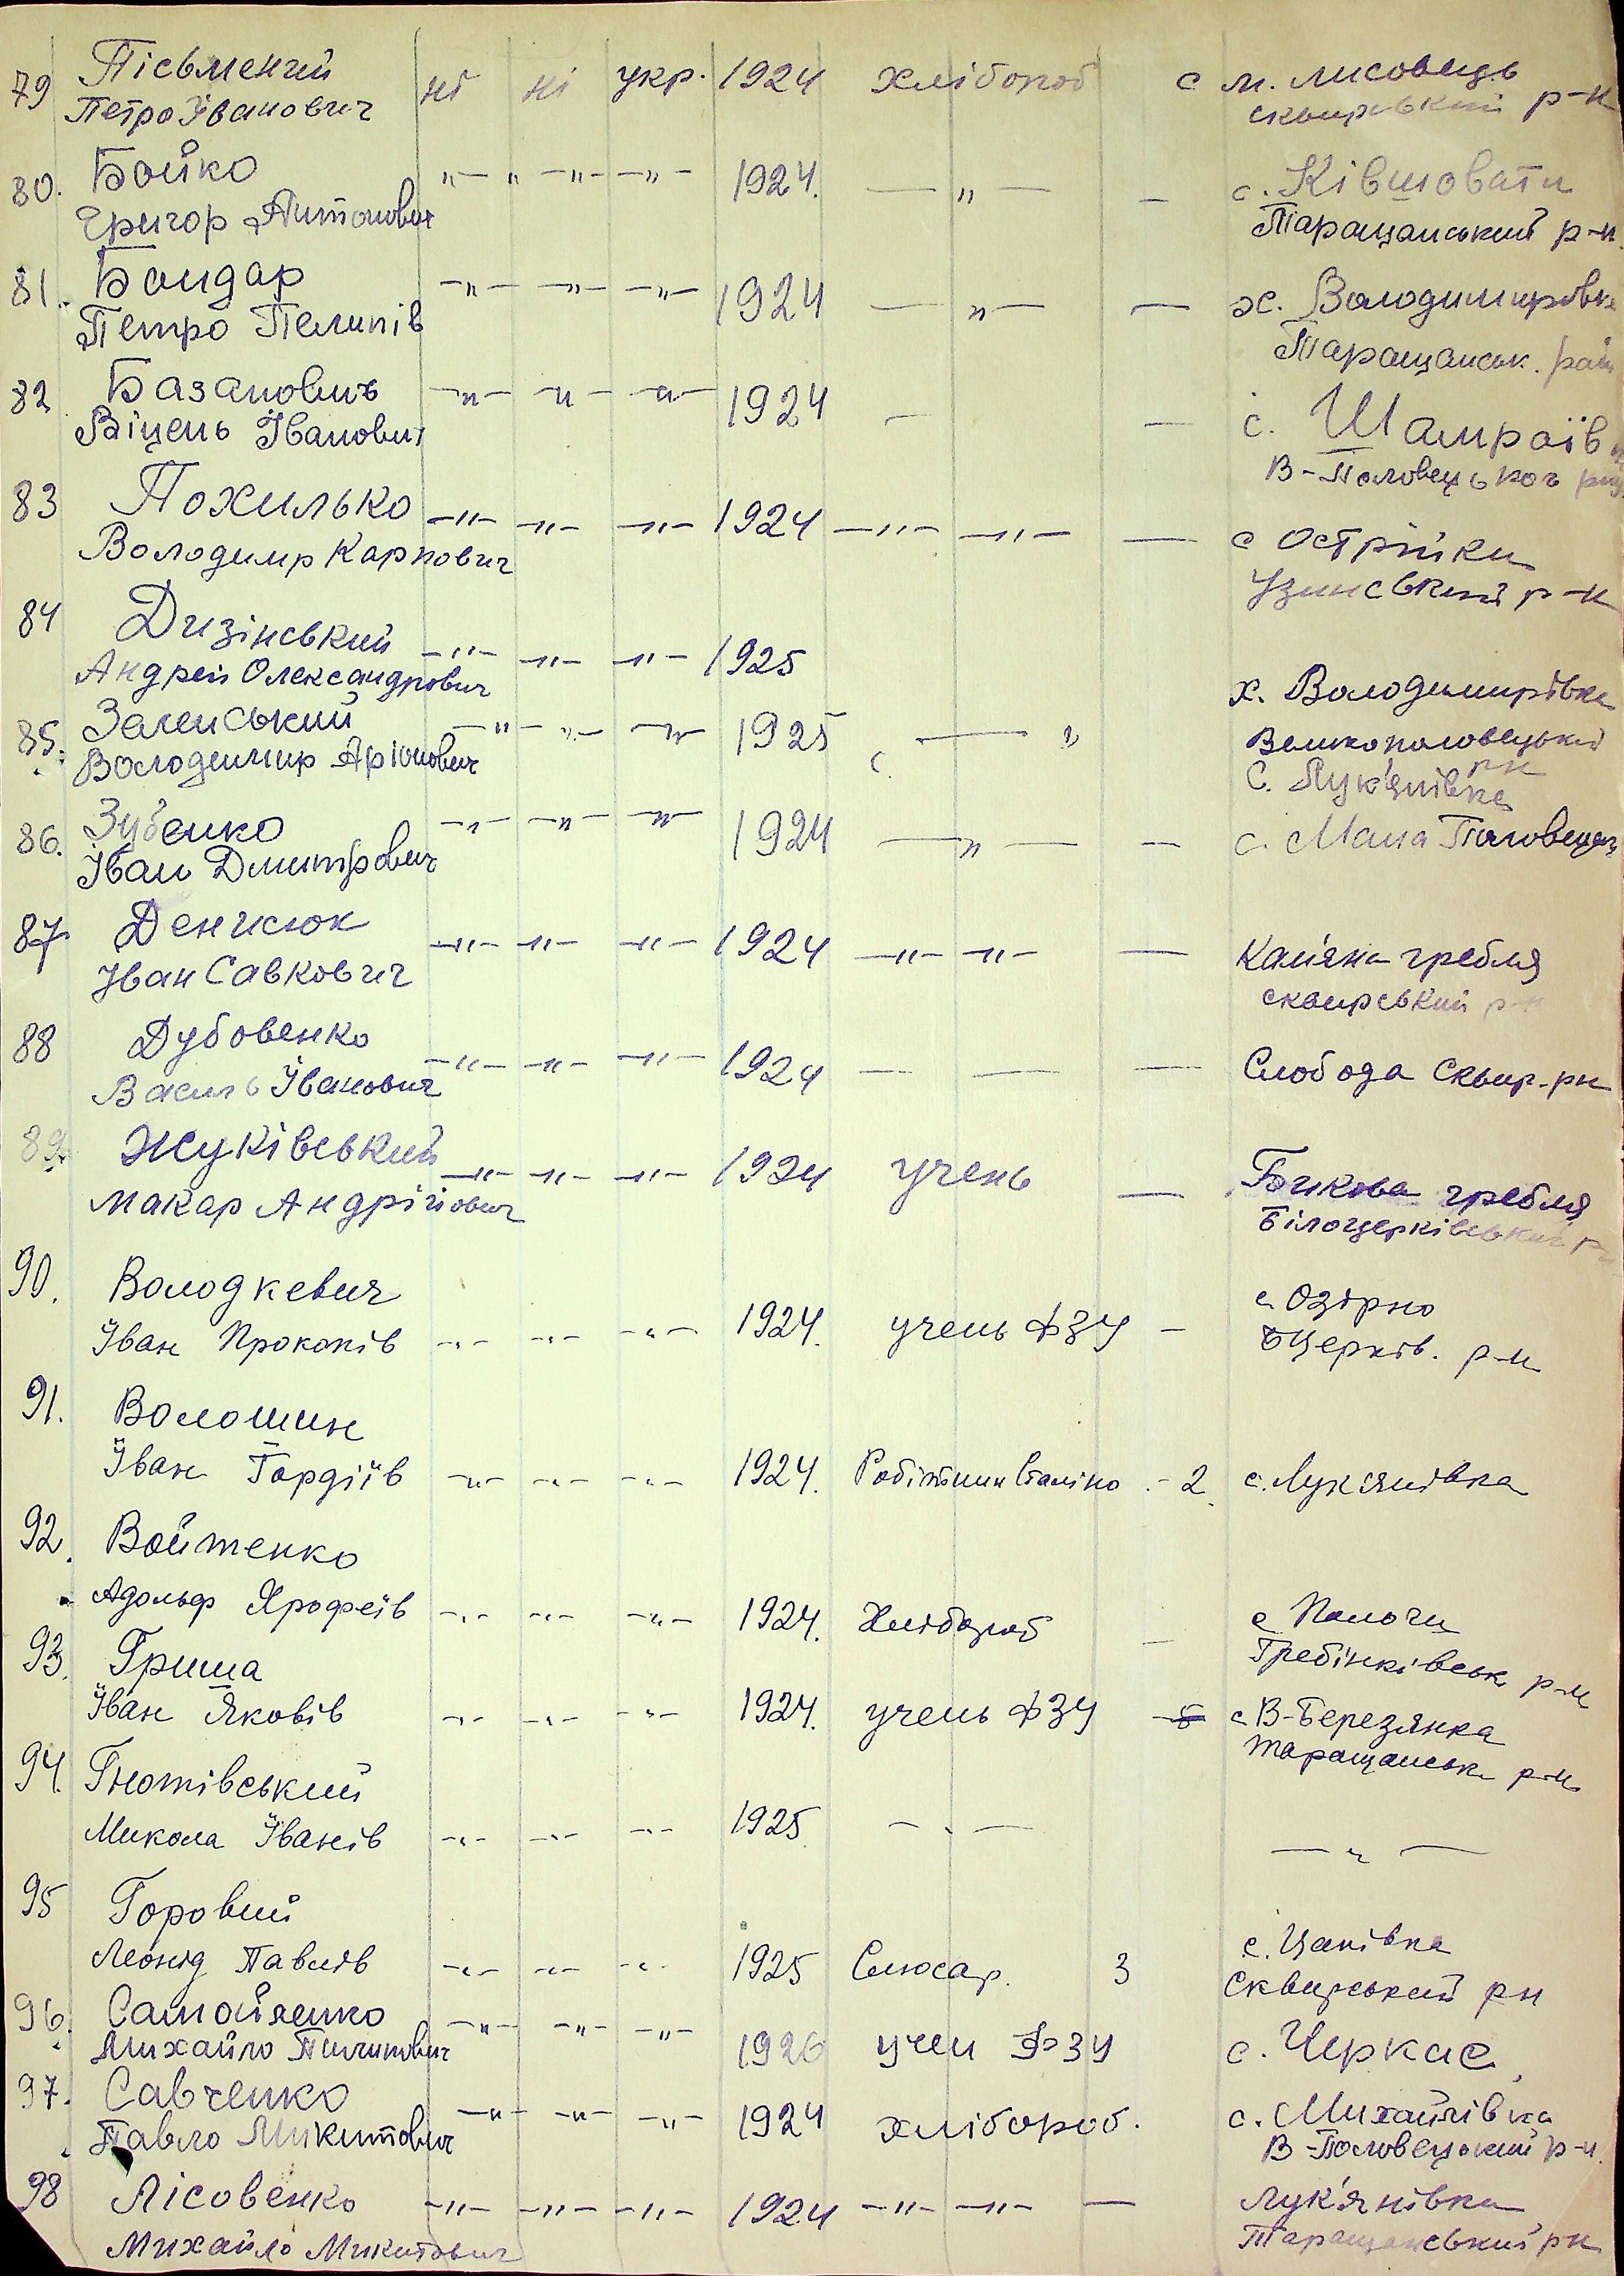 79 Пісьменний ні ні укр. 1924 хлібороб с м. Лисовець
Петро Іванович сквирський р-н
80. Бойко -"- " -"- -"- 1924. -"- - с. Ківшовати
Григор Антонович Таращанський р-н.
81. Бондар -"- -"- -"- 1924 -"- - х. Володимирівка
Петро Пелипів Таращанськ. рай
82 Базанович -"- -"- -"- 1924 - - с. Шамраївка
Іванович В-Половецьког
83 Похилько -"- -"- -"- 1924 -"- -"- - с Острійки
Володимр Карпович Узинський р-н
84 Дизінський -"- -"- -"- 1925
Андрей Олександрович х. Володимирівка
85. Заленський -"- -"- -"- 1925 с. - " Великополовецький
Володимир Аріонович рн
с. Лук'янівка
86. Зубенко -"- -"- -"- 1924 -"- - с. Мала Половецьк
Іван Дмитрович
87 Денисюк -"- -"- -"- 1924 -"- -"- - Кам'яна гребля
Іван Савкович сквирський р-н
88 Дубовенко -"- -"- -"- 1924 - - - Слобода Сквир-рн
Василь Іванович
89. Жуківський -"- -"- -"- 1924 учень - Бикова гребля
Макар Андрійович Білоцерківський р-н
90. Володкевич с Озірно
Іван Прокопів -"- -"- -"- 1924. учень ФЗУ - БЦерків. р-н
91. Волошин
Іван Гордіїв -"- -"- -"- 1924. Робітник Сталіно - 2. с. Лук'янівка
92. Войтенко
Адольф Ярофеїв -"- -"- -"- 1924. Хлібороб - с
Гребінківськ р-н
93. Гриша
Іван Яковів -"- -"- -"- 1924. учень ФЗУ с В-Березянка
Таращанськ р-н
94. Гнотівський
Микола Іванів -"- -"- -"- 1925 -"- -"-
95 Горовий с. Цапівка
Леонід Павлів -"- -"- -"- 1925 Слюсар. 3 Сквирський рн
96. Самойленко -"- -"- -"- 1926 учен ФЗУ с. Черкас
Михайло Пилипович
97. Савченко -"- -"- -"- 1924 хлібороб. с. Михайлівка
Павло Микитович В-Половецький р-н.
98 Лісовенко -"- -"- -"- 1924 -"- -"- - Лук'янівка
Михайло Микитович Таращанський рн